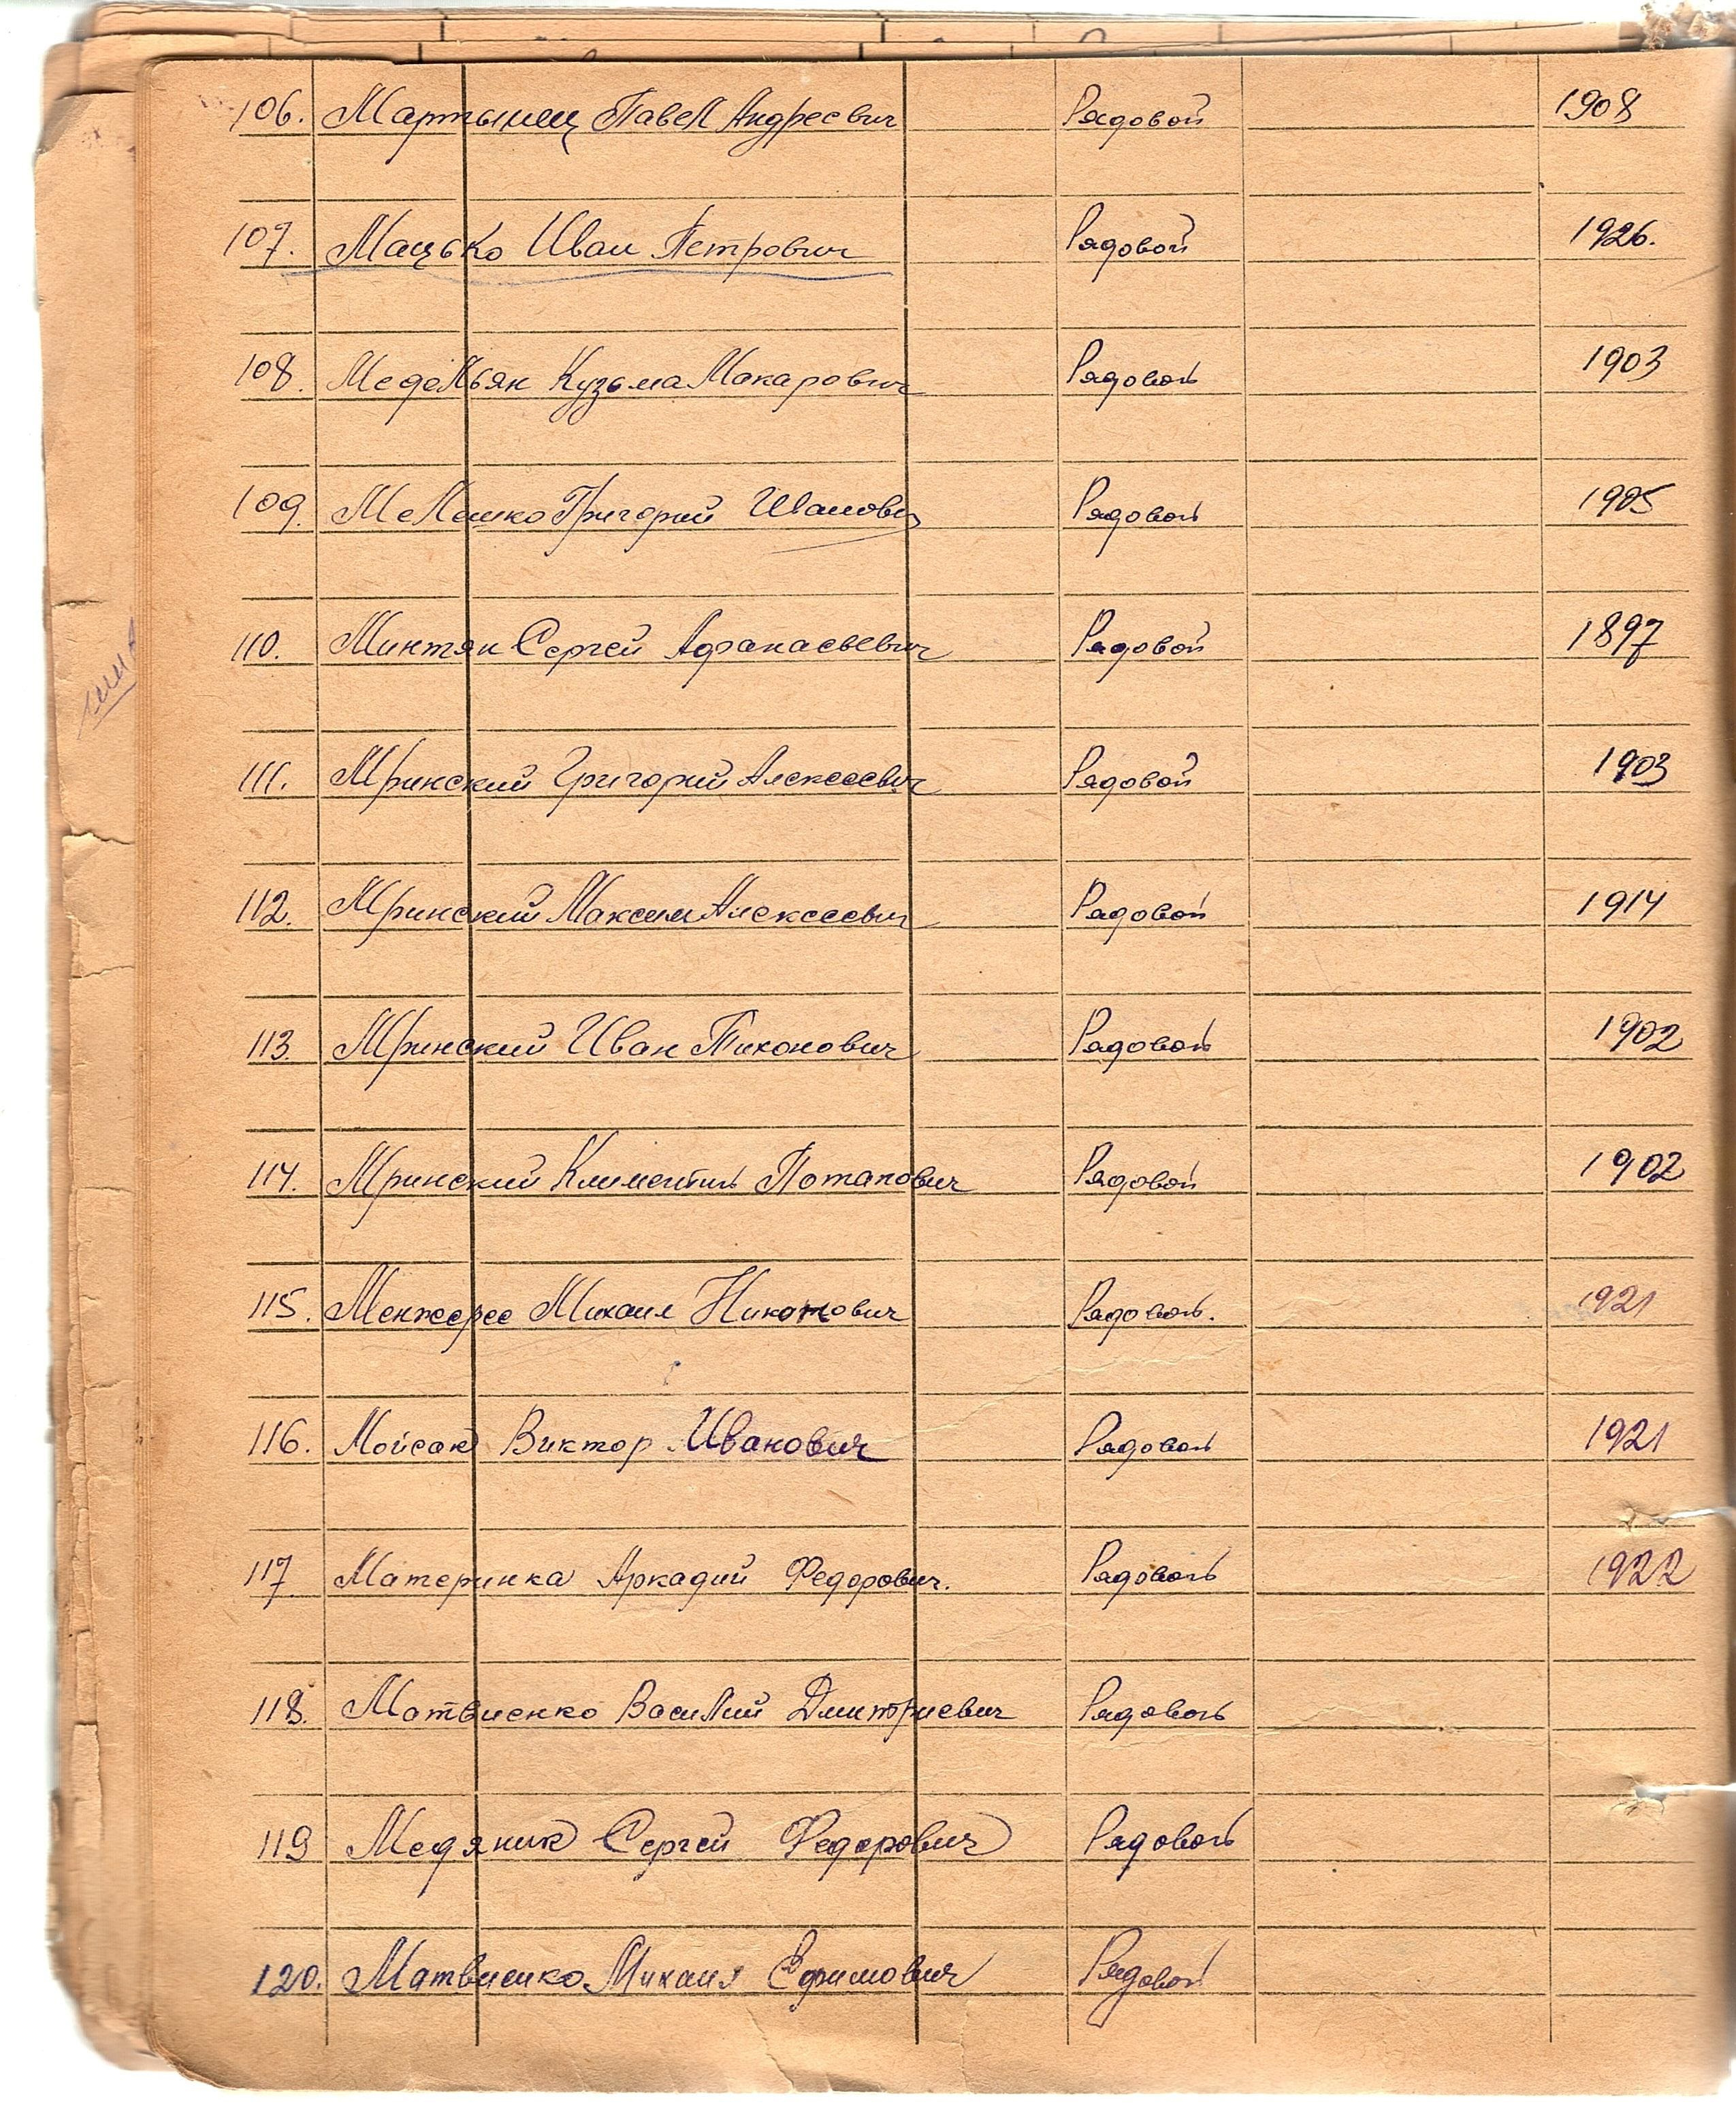 106. Мартынец Павел Андреевич Рядовой 1908
107. Мацько Иван Петрович Рядовой 1926.
108. Меделян Кузьма Макарович Рядовой 1903
109. Мелешко Григорий Иванович Рядовой 1905
110. Минтян Сергей Афанасьевич Рядовой 1897
111. Мринский Григорий Алексеевич Рядовой 1903
112. Мринский Максим Алексеевич Рядовой 1914
113. Мринский Иван Тихонович Рядовой 1902
114. Мринский Климентий Потапович Рядовой 1902
115. Менжерес Михаил Рядовой. 1921
116. Мойсак Виктор Иванович Рядовой 1921
117 Материнка Аркадий Федорович. Рядовой 1922
118. Матвиенко Василий Дмитриевич Рядовой
119 Медяник Сергей Федорович Рядовой
120. Матвиенко Михаил Ефимович Рядовой